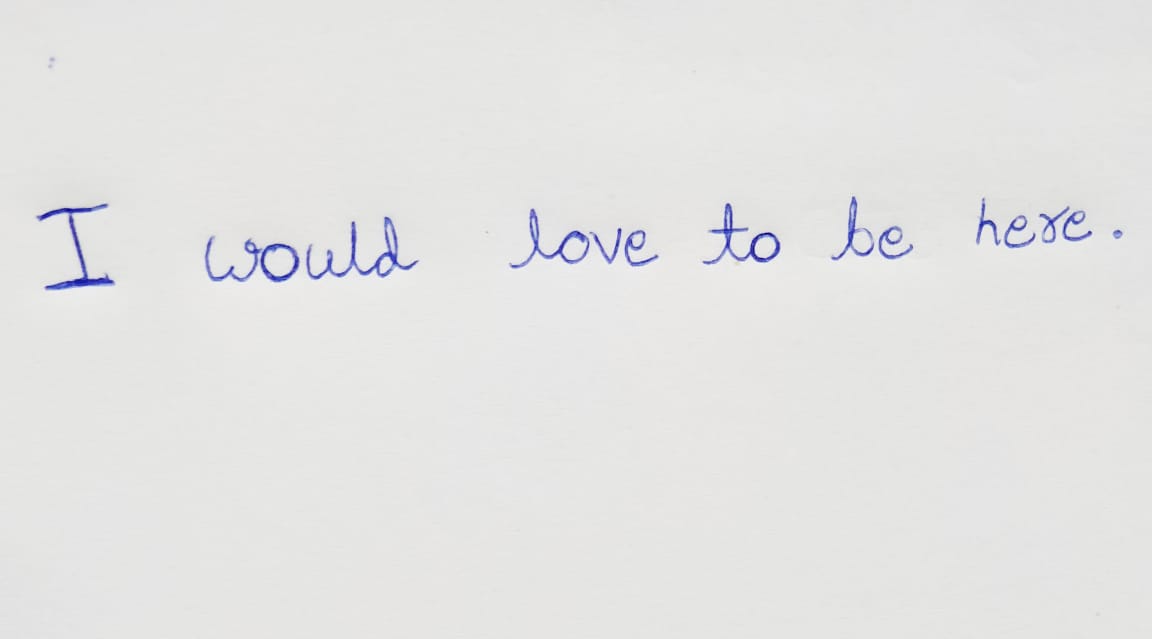 I would love to be here.